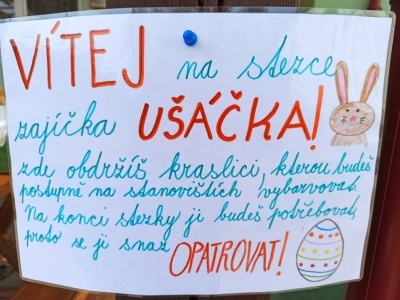 VÍTEJ na stezce
zajíčka UŠÁČKA!
zde obdržíš kraslici, kterou budeš
postupně na stanovištích vybarvovat.
Na konci stezky ji budeš potřebovat,
proto se ji snaž OPATROVAT!